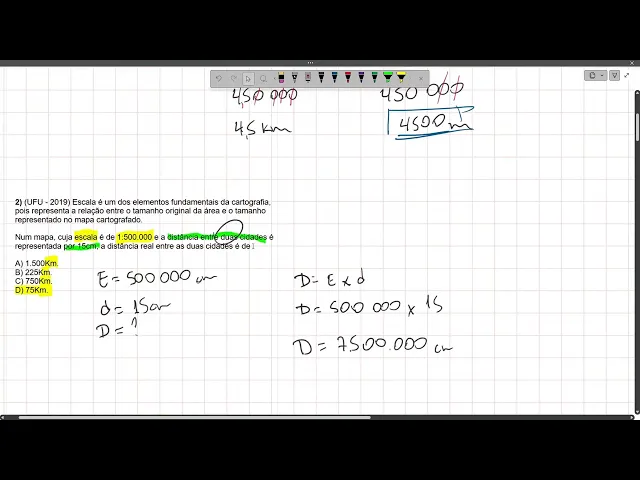 4,50 000
4,5 Km
450 000
4500 m
2) (UFU - 2019) Escala é um dos elementos fundamentais da cartografia,
pois representa a relação entre o tamanho original da área e o tamanho
representado no mapa cartografado.
Num mapa, cuja escala é de 1:500.000 e a distância entre duas cidades é
representada por 15cm, a distância real entre as duas cidades é de
A) 1.500Km.
B) 225Km.
C) 750Km.
D) 75Km.
E = 500 000 cm
d = 15cm
D = ?
D = E x d
D = 500 000 x 15
D = 7500.000 cm